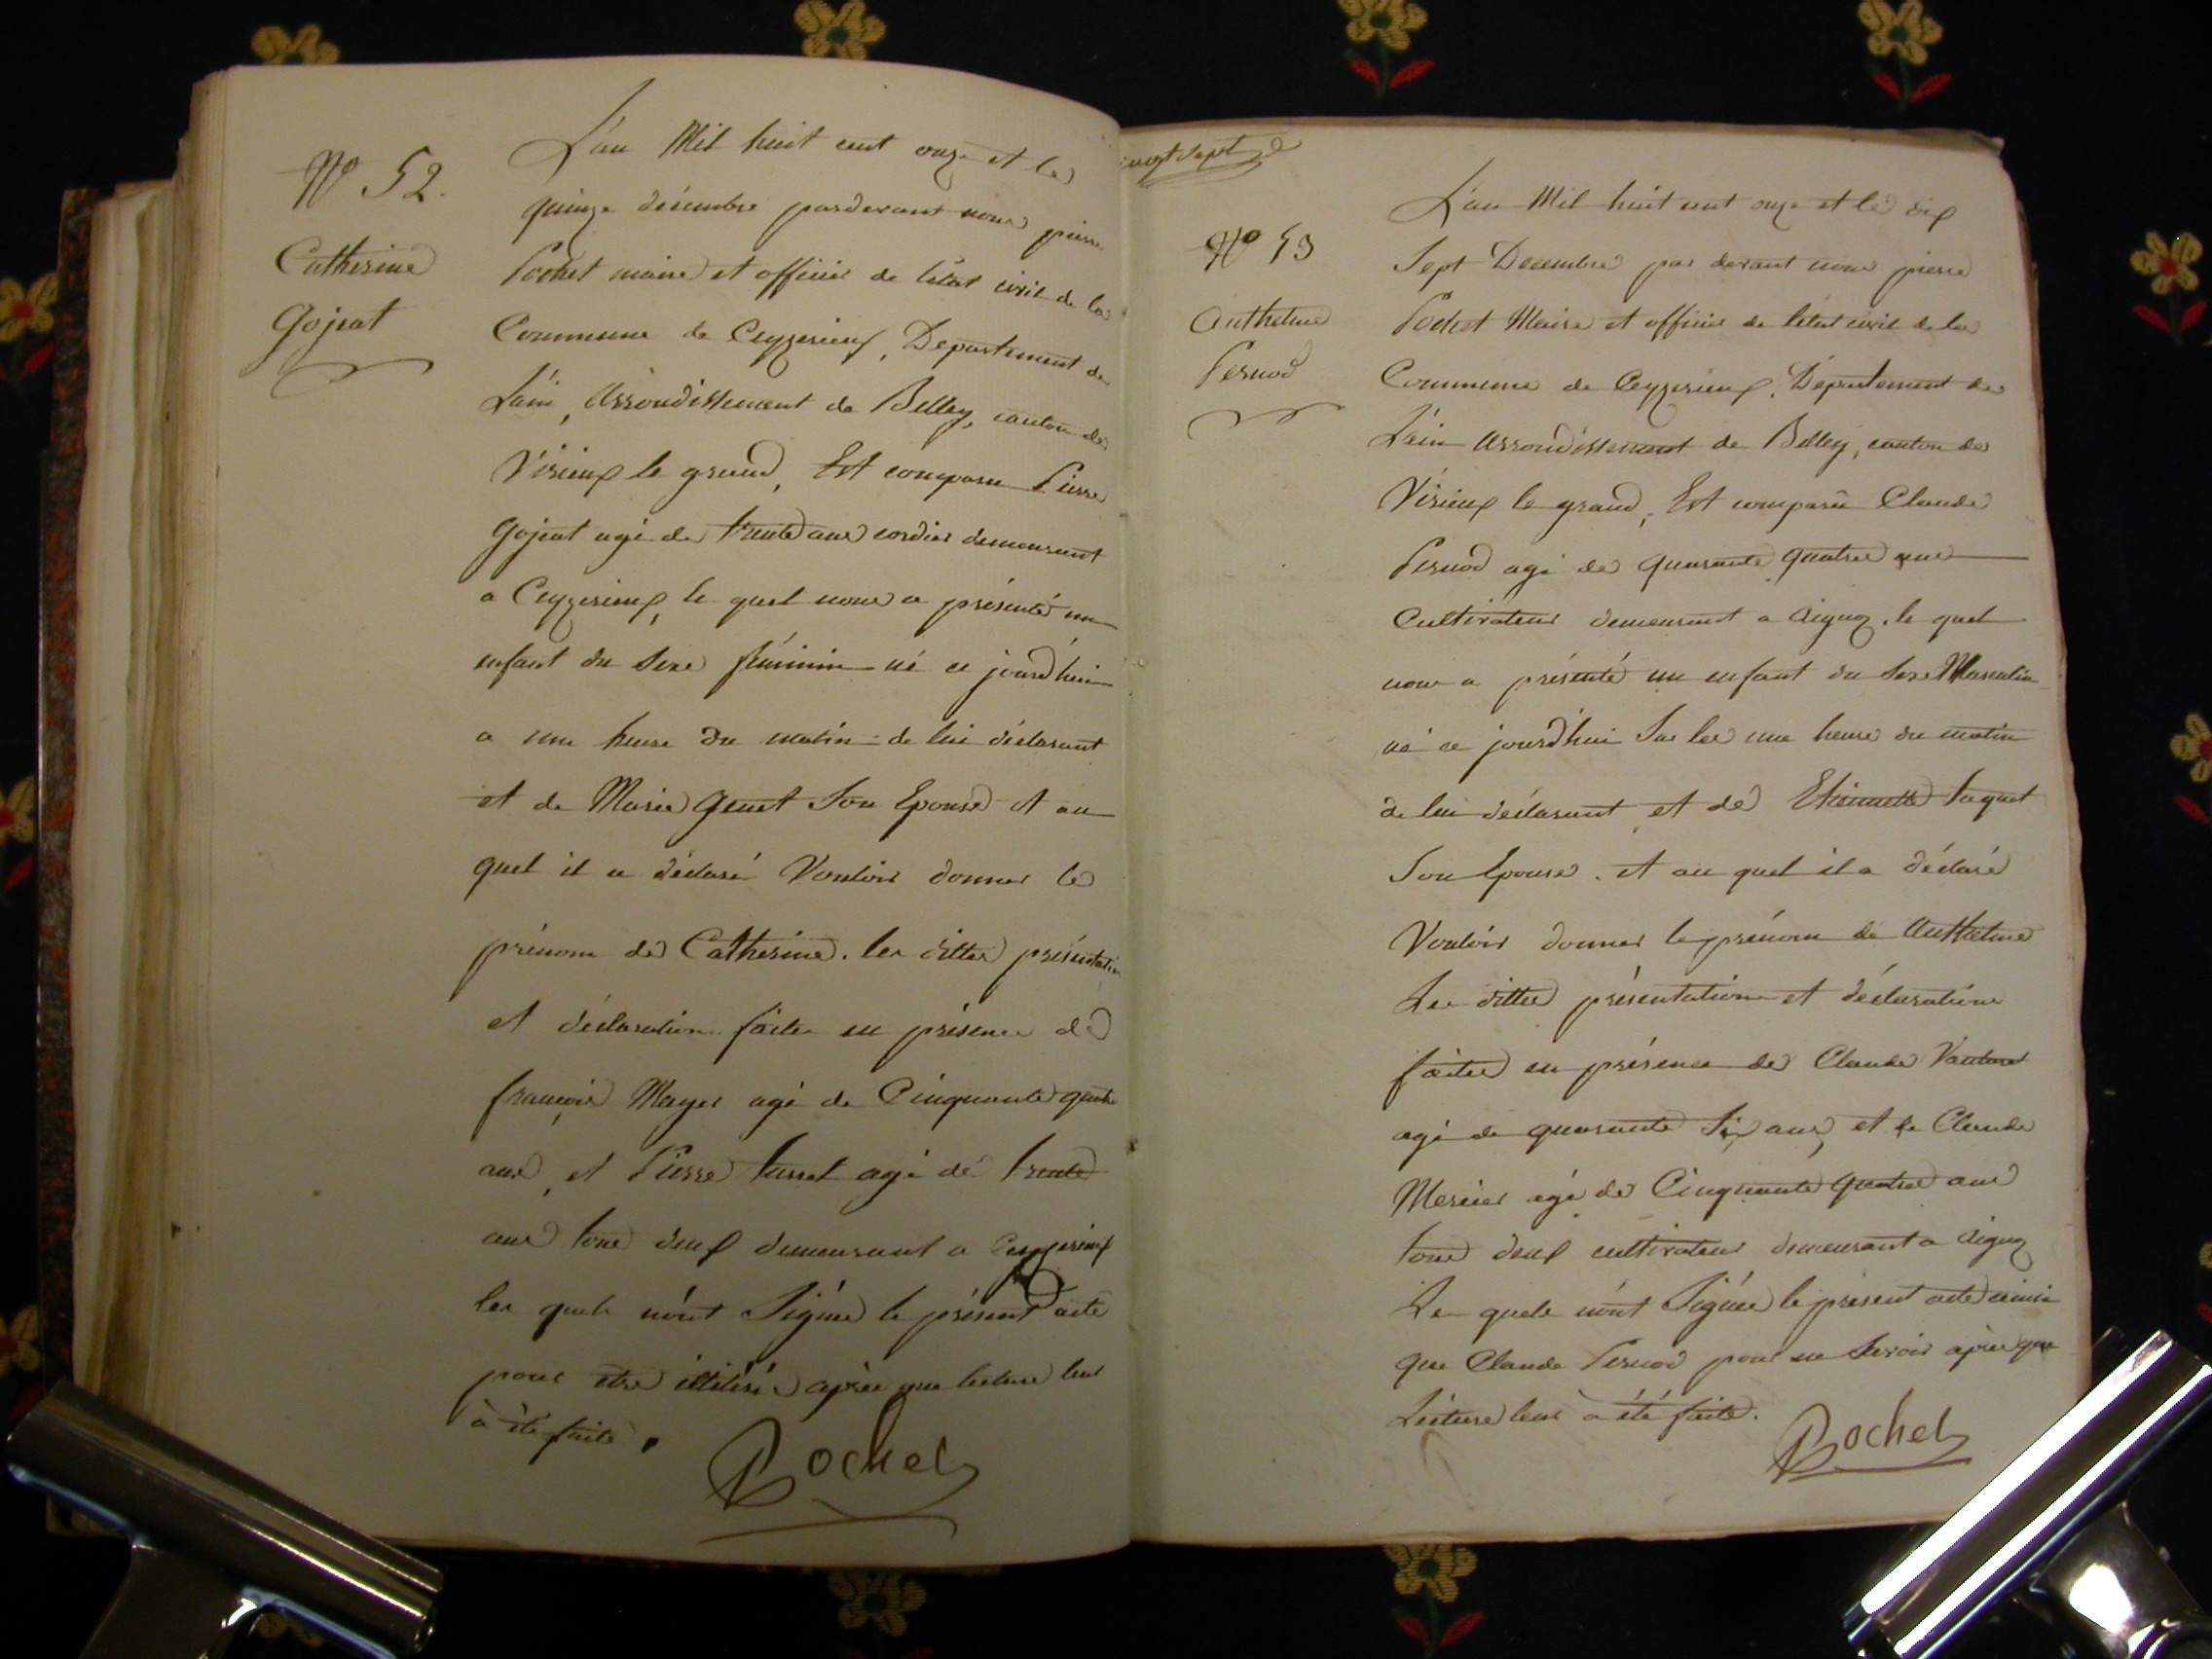 N° 52.
Catherine
Gojeat
L'an Mil huit cent onze et le
quinze décembre pardevant nous pierre
Pochet maire et officier de l'état civil de la
Commune de Ceyzerieux, Departement de
L'ain, Arrondissement de Belley, canton de
Virieux le grand, Est comparu Pierre
Gojeat agé de trente ans cordier demeurant
a Ceyzerieux, le quel nous a présenté un
enfant du Sexe féminin né ce jourd'hui
a une heure du matin de lui déclarant
et de Marie Genet Son Epouse et au
quel il a déclaré Vouloir donner le
prénom de Catherine. les dittes présentation
et déclaration faites en présence de
françois Mayer agé de Cinquante quatre
ans, et Pierre turrel agé de trente
ans tous deux demeurant a Ceyzerieux
les quels n'ont Signé le présent acte
pour etre illitéré après que lecture leur
à été faite.
Pochet
vingt Sept
N° 53
Anthelme
Pernod
L'an Mil huit cent onze et le dix
Sept Decembre par devant nous pierre
Pochet Maire et officier de l'état civil de la
Commune de Ceyzerieux, Département de
L'ain Arrondissement de Belley, canton de
Virieux le grand, Est comparu Claude
Pernod agé de quarante quatre ans
Cultivateur demeurant a Aignoz, le quel
nous a présenté un enfant du Sexe Masculin
né ce jourd'hui Sur les une heure du matin
de lui déclarant et de Etiennette
Son Epouse. et au quel il a déclaré
Vouloir donner le prénom de Anthelme
Les dittes présentation et déclaration
faites en présence de Claude
agé de quarante Six ans, et de Claude
Mercier agé de Cinquante quatre ans
tous deux cultivateur demeurant a Aignoz
Les quels n'ont Signé le présent acte ainsi
que Claude Pernod pour ne Savoir après que
Lecture leur à été faite.
Pochet